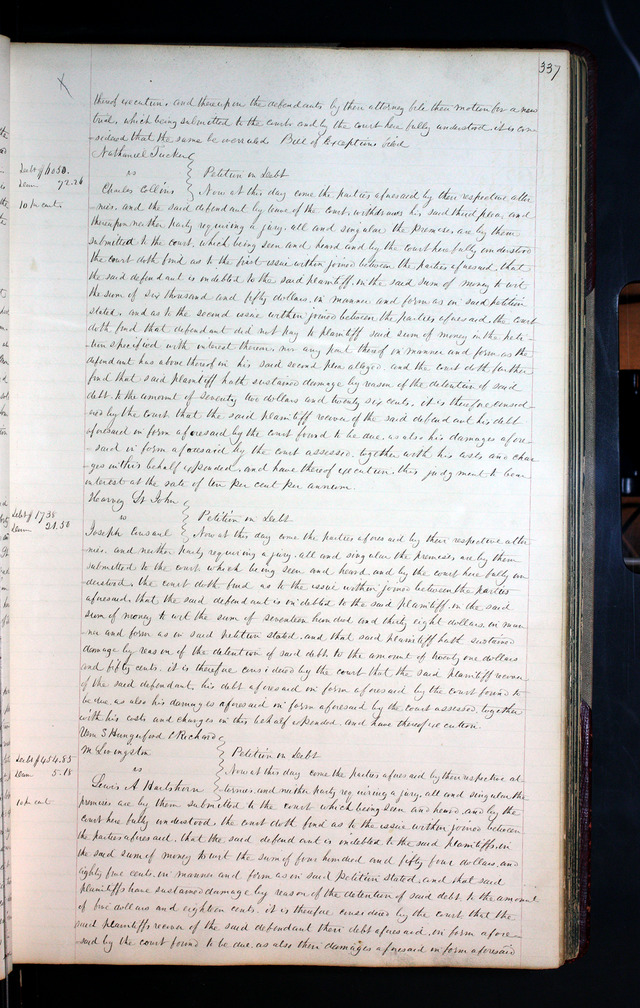 337
thereof execution. and thereupon the defendants by their attorney file their motion for a new
trial, which being submitted to the court and by the court here fully understood it is con-
sidered that the same be overruled Bill of Exceptions filed
Nathaniel Tucker
Debt $6050.
Dam 72.26
vs Petition in Debt
10 pr cents
Charles Collins Now at this day come the parties aforesaid by their respective attor
nies. and the said defendant by leave of the court withdraws his said third plea, and
thereupon neither party requiring a jury, all and singular the premises are by them
submitted to the court, which being seen and heard and by the court here fully understood
the court doth find as to the first issue within joined between the parties aforesaid, that
the said defendant is indebted to the said plaintiff in the said sum of money to wit
the sum of six thousand and fifty dollars, in manner and form as in said petition
stated, and as to the second issue within joined between the parties aforesaid, the court
doth find that defendant did not pay to plaintiff said sum of money in the peti-
tion specified with interest thereon, nor any part thereof in manner and form as the
defendant has above thereof in his said second plea alleged. and the court doth further
find that said plaintiff hath sustained damage by reason of the detention of said
debt, to the amount of seventy two dollars and twenty six cents. it is therefore consid-
ered by the court that the said plaintiff recover of the said defendant his debt
aforesaid in form aforesaid by the court found to be due, as also his damages afore-
said in form aforesaid by the court assessed, together with his costs and char
ges in this behalf expended, and have thereof execution, this judgment to bear
interest at the rate of ten per cent per annum.
Harvey St John
Debt $1738
Dam 21.50
vs Petition in Debt
Joseph Now at this day come the parties aforesaid by their respective attor
nies. and neither party requiring a jury, all and singular the premises are by them
submitted to the court which being seen and heard, and by the court here fully un
derstood. the court doth find as to the issue within joined between the parties
aforesaid, that the said defendant is indebted to the said plaintiff, in the said
sum of money to wit the sum of seventeen hundred and thirty eight dollars, in man
ner and form as in said petition stated. and that said plaintiff hath sustained
damage by reason of the detention of said debt to the amount of twenty one dollars
and fifty cents. it is therefore considered by the court that the said plaintiff recover
of the said defendant, his debt aforesaid in form aforesaid by the court found to
be due, as also his damages aforesaid in form aforesaid by the court assessed, together
with his costs and charges in this behalf expended, and have thereof execution.
Wm S Hungerford & Richard
M Livingston Petition in Debt
Debt $454.85
Dam 5.18
vs Now at this day come the parties aforesaid by their respective at
Lewis A Hartshorn tornies, and neither party requiring a jury, all and singular the
10 pr cent
premises are by them submitted to the court which being seen and heard, and by the
court here fully understood, the court doth find as to the issue within joined between
the parties aforesaid, that the said defendant is indebted to the said plaintiffs, in
the said sum of money to wit the sum of four hundred and fifty four dollars, and
eighty five cents, in manner and form as in said petition stated, and that said
plaintiffs have sustained damage by reason of the detention of said debt to the amount
of five dollars and eighteen cents. it is therefore considered by the court that the
said plaintiffs recover of the said defendant their debt aforesaid, in form afore-
said by the court found to be due, as also their damages aforesaid in form aforesaid